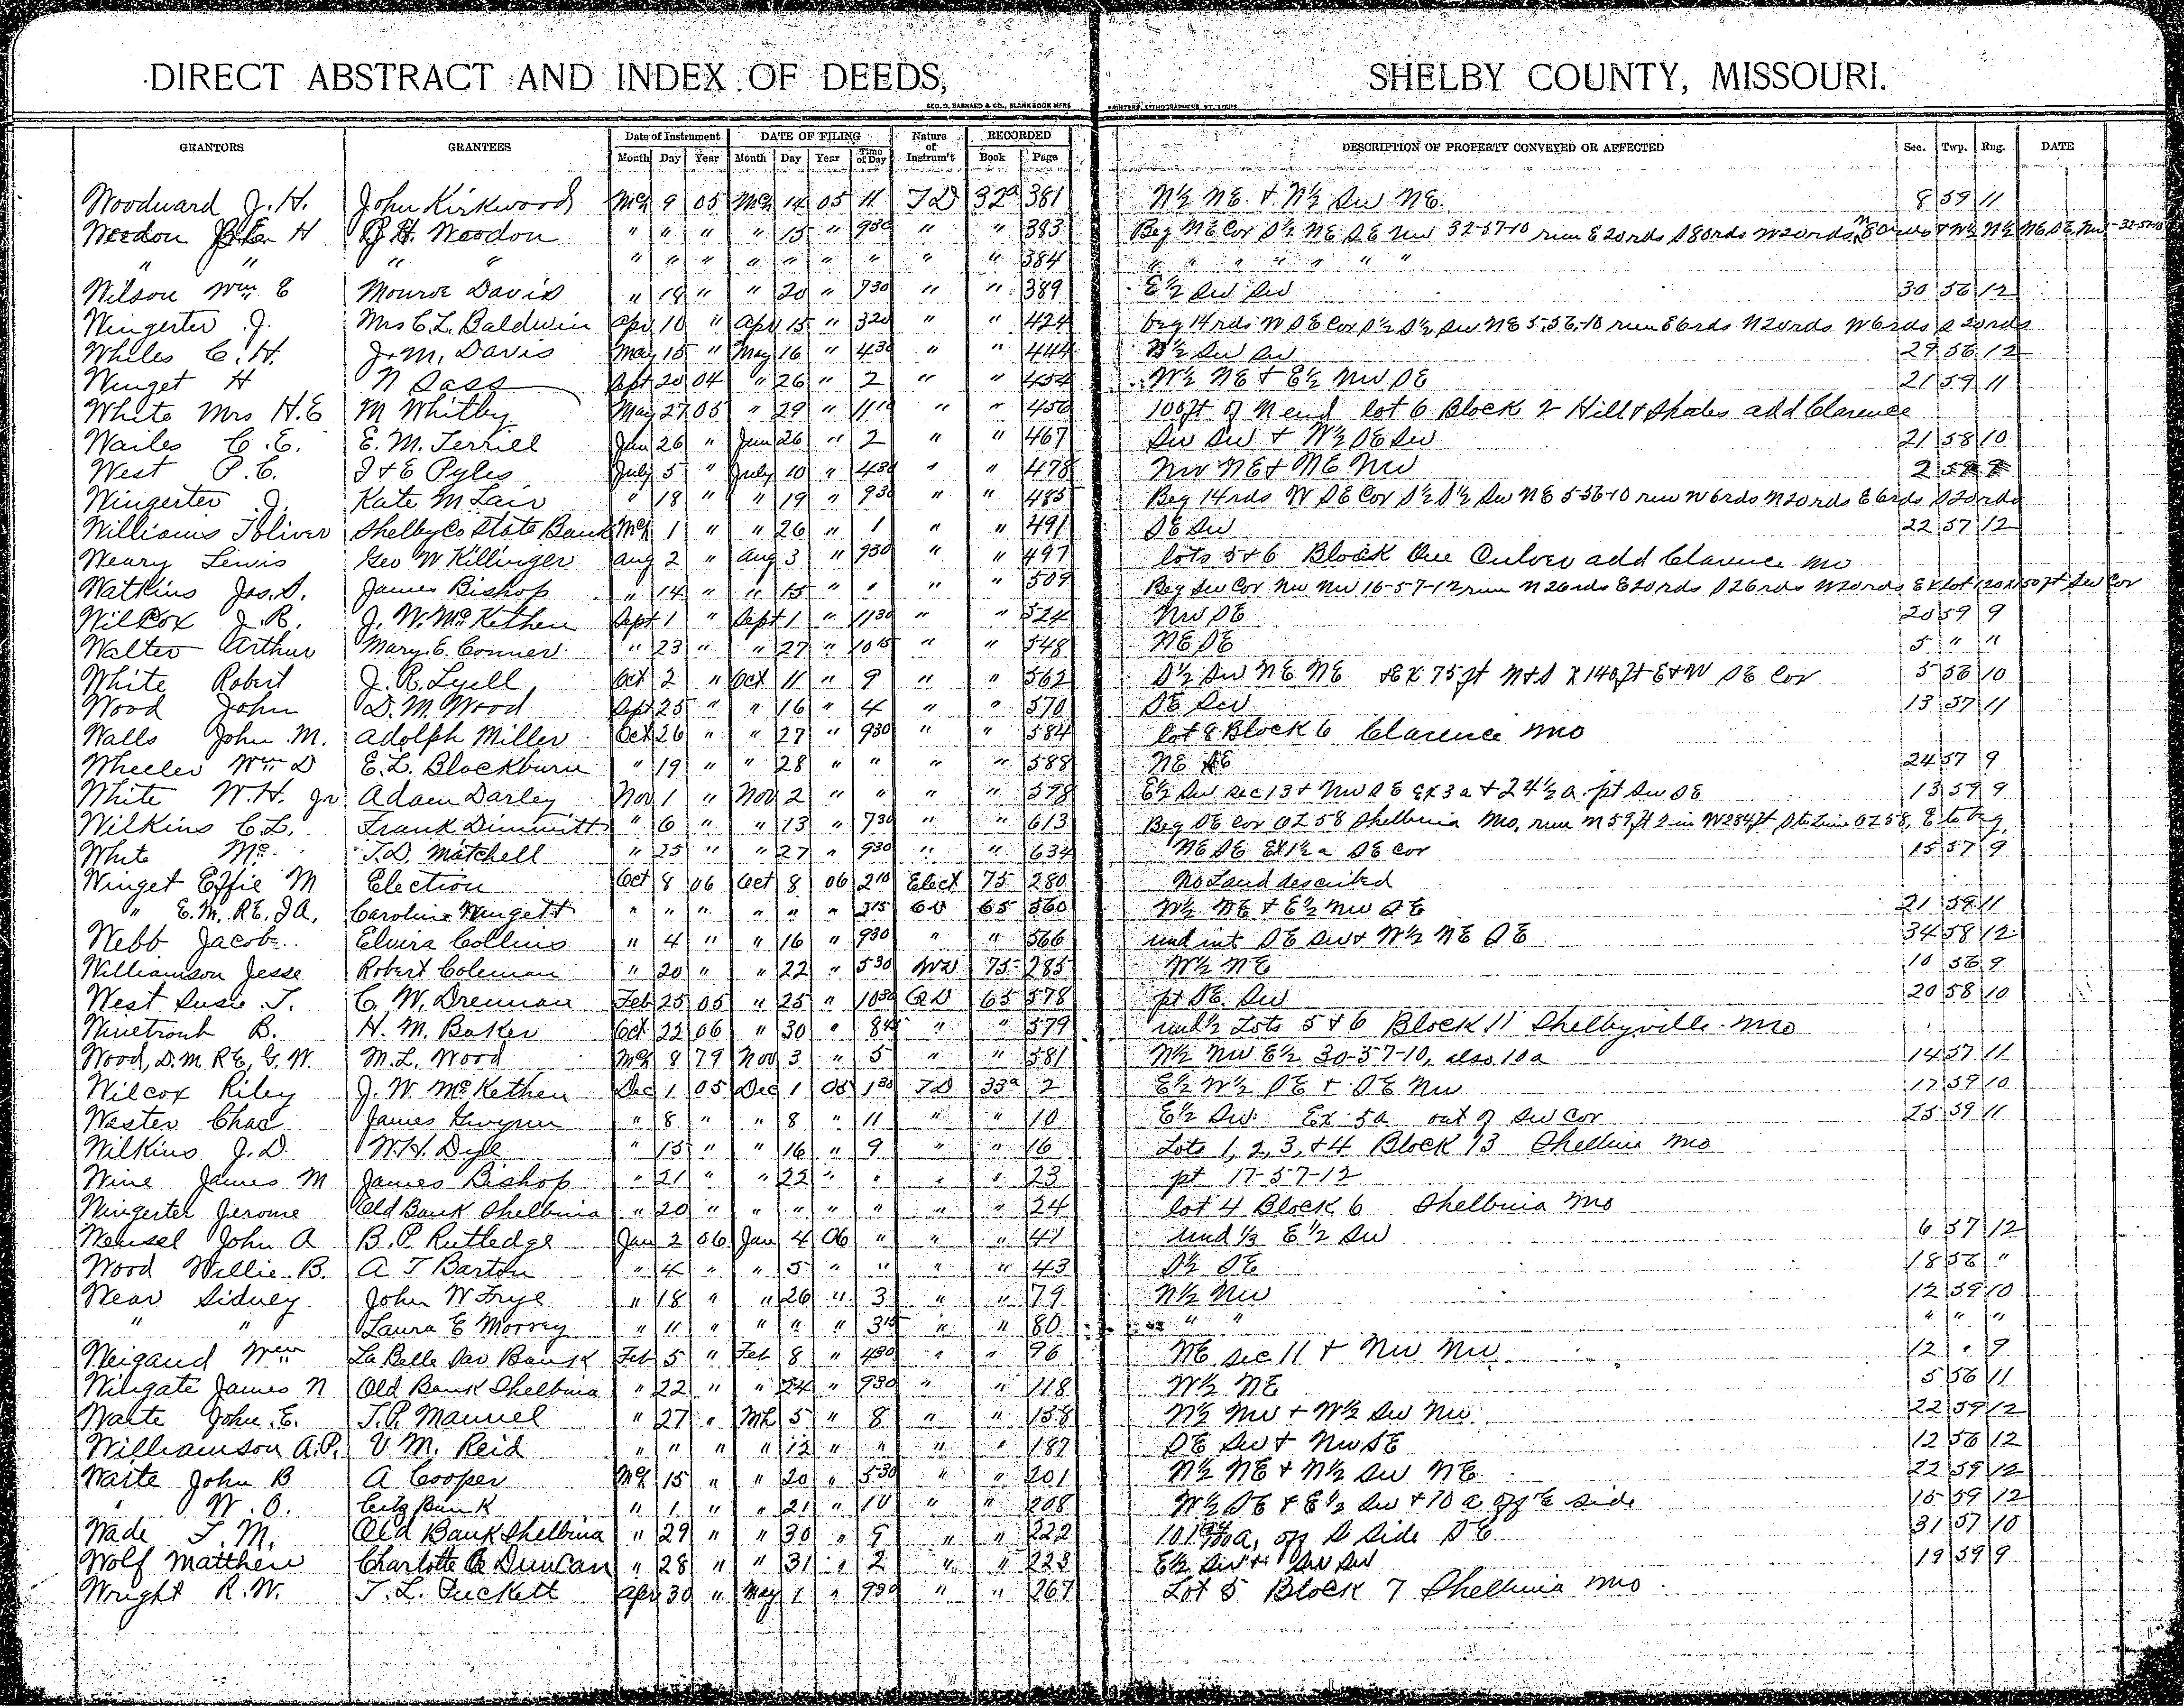 DIRECT ABSTRACT AND INDEX OF DEEDS, SHELBY COUNTY, MISSOURI.
GEO. D. BARNARD & CO., BLANK BOOK MFRS. PRINTERS, LITHOGRAPHERS, ST. LOUIS
GRANTORS GRANTEES Date of Instrument DATE OF FILING Nature of Instrum't RECORDED DESCRIPTION OF PROPERTY CONVEYED OR AFFECTED Sec. Twp. Rng. DATE
Month Day Year Month Day Year Time of Day Book Page
Woodward J. H. John Kirkwood Mch 9 05 Mch 14 05 11 TD 32a 381 N½ NE + N½ SW NE 8 59 11
Weedon H J. H. Weedon " " " " 15 " 930 " " 383 Beg NE Cor S½ NE SE NW 32-57-10 run E 20rds S 80rds W 20rds N 80rds + W½ N½ NE SE NW 32-57-10
" " " " " " " " " " " " " 384 " " " " " " "
Wilson Wm E Monroe Davis " 18 " " 20 " 730 " " 389 E½ SW SW 30 56 12
Wingerter J. Mrs C. L. Baldwin Apr 10 " Apr 15 " 320 " " 424 beg 14rds W SE Cor S½ S½ SW NE 5-56-10 run E 6rds N 20rds W 6rds S 20rds
Whiles C. H. J. M. Davis May 15 " May 16 " 430 " " 444 SW SW 29 56 12
Winget H N Sass Sept 20 04 " 26 " 2 " " 454 W½ NE + E½ NW SE 21 59 11
White Mrs H. E M Whitby May 27 05 " 29 " 1110 " " 456 100ft of N end lot 6 Block 2 Hill + Shales add Clarence
Wailes C. E. E. M. Terrill Jun 26 " Jun 26 " 2 " " 467 SW SW + W½ SE SW 21 58 10
West P. C. J + E Pyles July 5 " July 10 " 430 " " 478 NW NE + NE NW 2
Wingerter J. Kate M Lair " 18 " " 19 " 930 " " 485 Beg 14rds W SE Cor S½ S½ SW NE 5-56-10 run W 6rds N 20rds E 6rds S 20rds
Williams Toliver Shelby Co State Bank Mch 1 " " 26 " 1 " " 491 SE SW 22 57 12
Weary Lewis Geo W Killinger Aug 2 " Aug 3 " 930 " " 497 lots 5+6 Block One Culver add Clarence Mo
Watkins Jas. S. James Bishop " 14 " " 15 " " " " 509 Beg SW Cor NW NW 16-57-12 run N 26rds E 20rds S 26rds W 20rds Ex Lot 120x150ft SW Cor
Wilcox J. R. J. W. McKethen Sept 1 " Sept 1 " 1130 " " 524 NW SE 20 59 9
Walter Arthur Mary E. Conner " 23 " " 27 " 1015 " " 548 NE SE 5 " "
White Robert J. R. Lyell Oct 2 " Oct 11 " 9 " " 562 S½ SW NE NE + Ex 75ft N+S X 140ft E+W SE Cor 5 56 10
Wood John D. M. Wood Sept 25 " " 16 " 4 " " 570 SE SW 13 57 11
Walls John M. Adolph Miller Oct 26 " " 27 " 930 " " 584 lot 8 Block 6 Clarence Mo
Wheeler Wm D E. L. Blackburn " 19 " " 28 " " " " 588 NE 24 57 9
White W. H. Jr Adam Darley Nov 1 " Nov 2 " " " " 598 E½ SW sec 13 + NW SE Ex 3a + 24½ a pt SW SE 13 59 9
Wilkins C. L. Frank Dimmitt " 6 " " 13 " 730 " " 613 Beg SE Cor OL 58 Shelbina Mo, run N 59ft 2 in W 284ft S to Line OL 58, E to beg.
White Mc T. D. Matchell " 25 " " 27 " 930 " " 634 NE SE Ex 1½ a SE Cor 15 57 9
Winget Effie M Election Oct 8 06 Oct 8 06 210 Elect 75 280 No Land described
" E. M. RE, JA. Caroline Wingett " " " " " " 315 65 560 W½ NE + E½ NW SE 21 59 11
Webb Jacob Elvira Collins " 4 " " 16 " 930 " " 566 und int SE SW + W½ NE SE 34 58 12
Williamson Jesse Robert Coleman " 20 " " 22 " 530 WD 75 285 W½ NE 10 56 9
West Susie T. C. W. Drennan Feb 25 05 " 25 " 1030 QD 65 578 pt SE SW 20 58 10
Winetroub B. H. M. Baker Oct 22 06 " 30 " 845 " " 579 und½ Lots 5+6 Block 11 Shelbyville Mo
Wood, D. M. RE, G. W. M. L. Wood Mch 8 79 Nov 3 " 5 " " 581 N½ NW E½ 30-57-10, also 10a 14 57 11
Wilcox Riley J. W. McKethen Dec 1 05 Dec 1 05 130 TD 33a 2 E½ W½ SE + SE NW 17 59 10
Wester Chas James Gwynn " 8 " " 8 " 11 " " 10 E½ SW Ex 5a out of SW Cor 25 59 11
Wilkins J. D. W. H. Dyle " 15 " " 16 " 9 " " 16 Lots 1, 2, 3, +4 Block 13 Shelbina Mo
Wine James M James Bishop " 21 " " 22 " " " " 23 pt 17-57-12
Wingerter Jerome Old Bank Shelbina " 20 " " " " " " " 24 lot 4 Block 6 Shelbina Mo
Wensel John A B. P. Rutledge Jan 2 06 Jan 4 06 " " " 41 und ⅓ E½ SW 6 57 12
Wood Willie B. A T Barton " 4 " " 5 " " " " 43 S½ SE 18 56 "
Wear Sidney John W Frye " 18 " " 26 " 3 " " 79 N½ NW 12 59 10
" " Laura E Morrey " 11 " " " " 315 " " 80 " " " " "
Weigand Wm La Belle Sav Bank Feb 5 " Feb 8 " 430 " " 96 NE sec 11 + NW NW 12 " 9
Wingate James N Old Bank Shelbina " 22 " " 24 " 930 " " 118 W½ NE 5 56 11
Waite John E. T. P. Manuel " 27 " Mch 5 " 8 " " 158 N½ NW + W½ SW NW 22 59 12
Williamson A. P. V. M. Reid " " " " 12 " " " " 187 SE SW + NW SE 12 56 12
Waite John B A Cooper Mch 15 " " 20 " 530 " " 201 N½ NE + N½ SW NE 22 59 12
" W. O. Citz Bank " 1 " " 21 " 10 " " 208 W½ SE + E½ SW + 70 a off E side 15 59 12
Wade T. M. Old Bank Shelbina " 29 " " 30 " 9 " " 222 a, off S Side SE 31 57 10
Wolf Matthew Charlotte Duncan " 28 " " 31 " 2 " " 223 E½ SW + SW SW 19 59 9
Wright R. W. T. L. Tuckett Apr 30 " May 1 " 930 " " 267 Lot 5 Block 7 Shelbina Mo